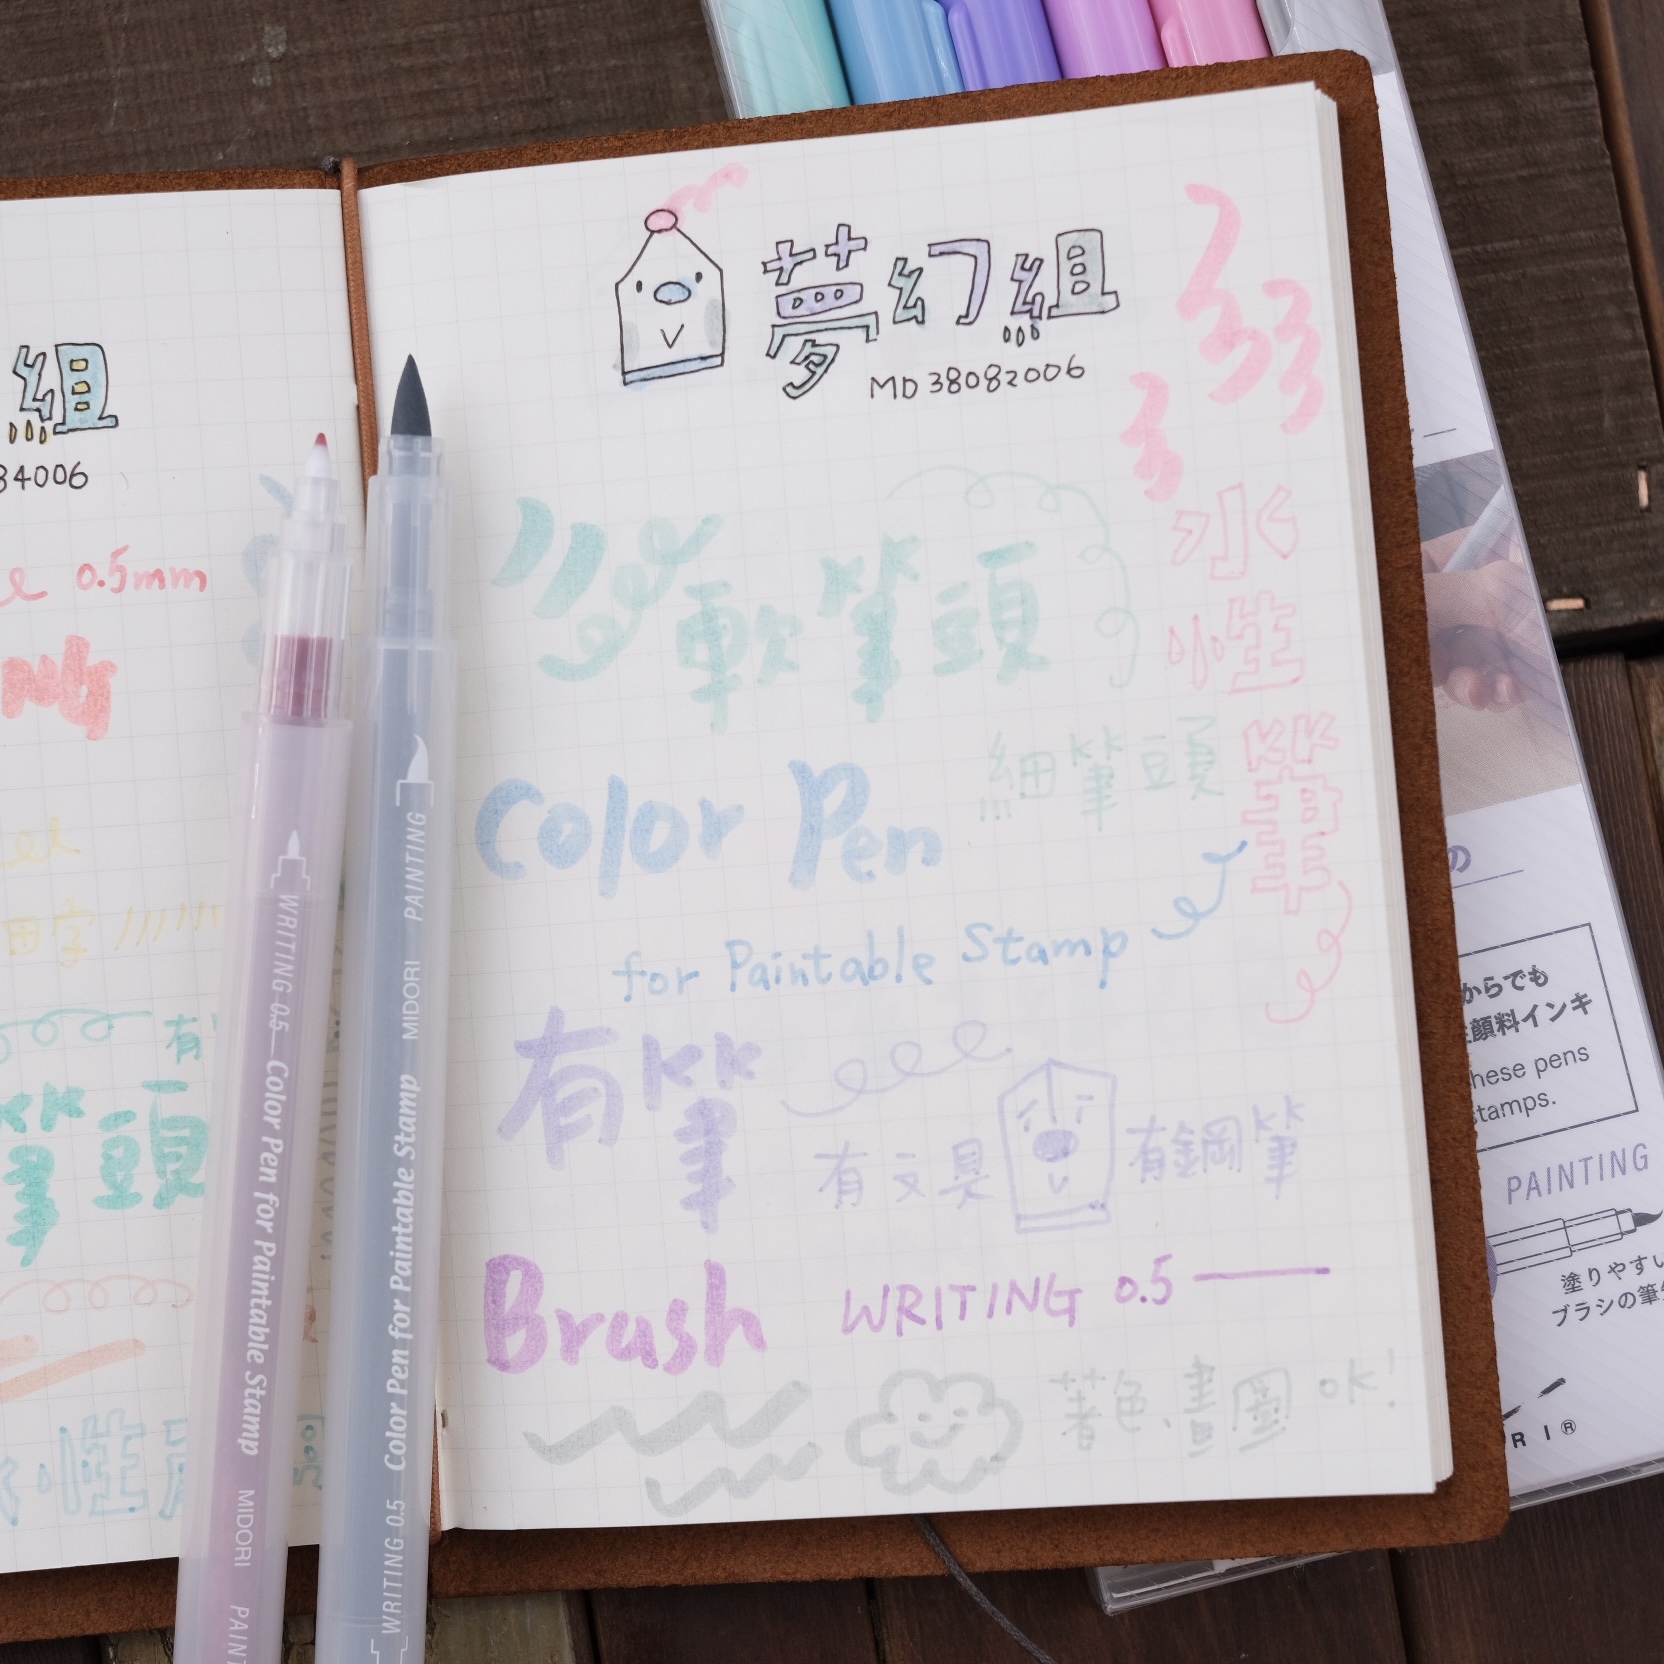 組
84006
0.5mm
筆頭
夢幻組
MD 38082006
水性筆
軟筆頭
細筆頭
Color Pen
for Paintable Stamp
有筆
有文具 有鋼筆
Brush WRITING 0.5
著色、畫圖 OK!
WRITING 0.5 Color Pen for Paintable Stamp MIDORI
WRITING 0.5 Color Pen for Paintable Stamp MIDORI PAINTING
の
からでも
顔料インキ
hese pens
stamps.
PAINTING
塗りやすい
ブラシの筆
R I ®